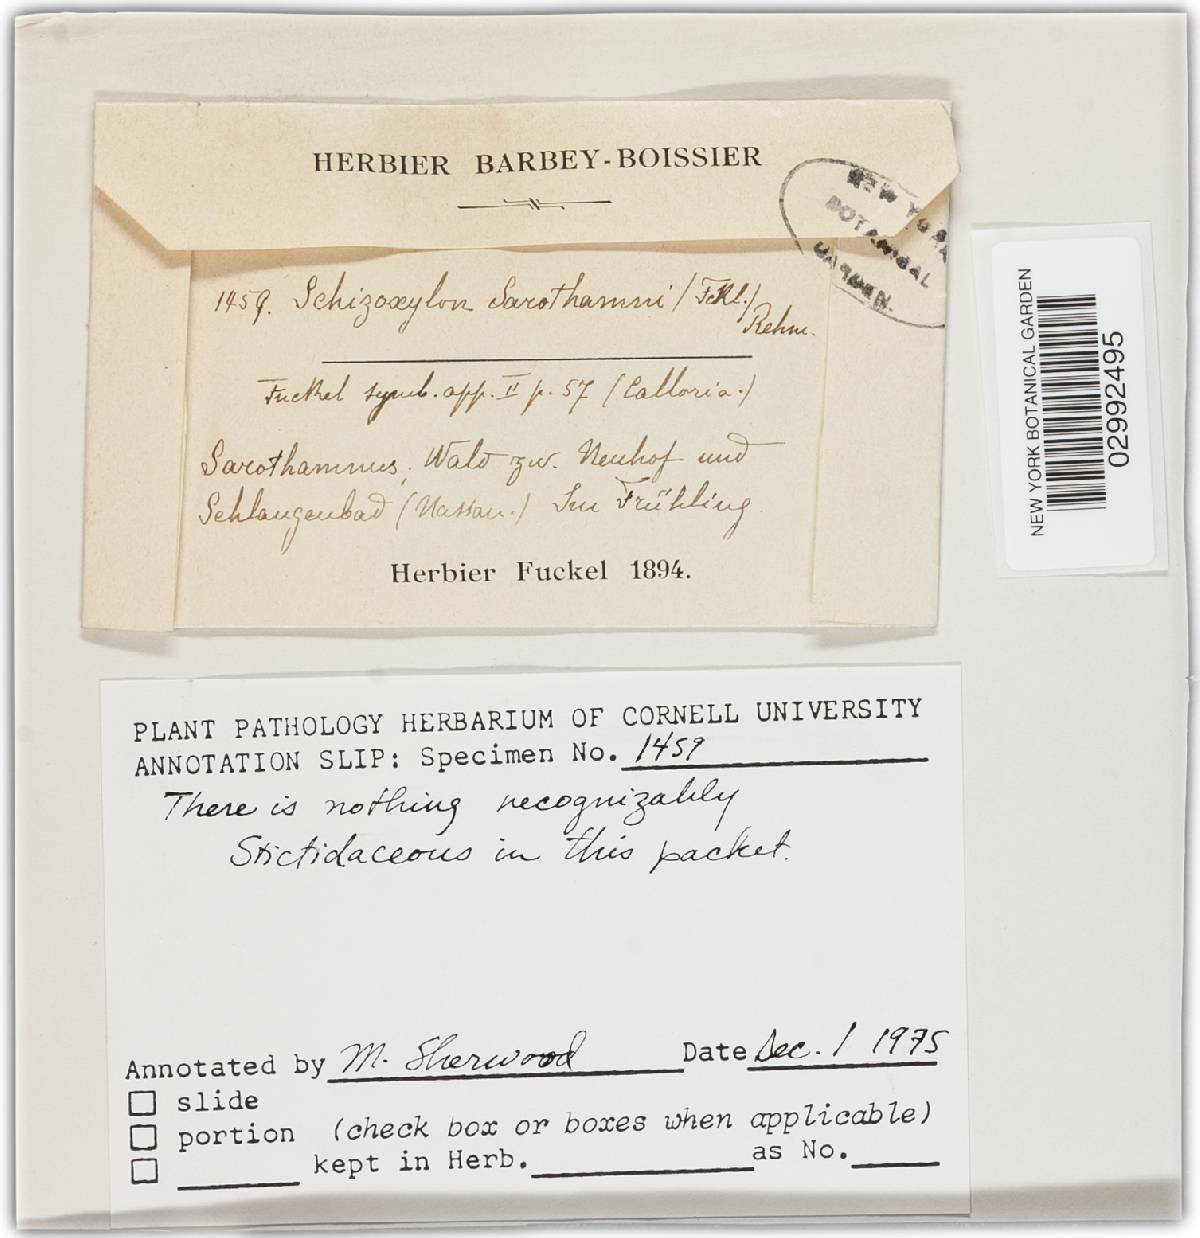 HERBIER BARBEY-BOISSIER
NEW YORK
BOTANICAL
GARDEN.
1459. Schizoxylon Sarothamni (Fckl.)
Rehm.
Fuckel symb. app. II p. 57 (Calloria.)
Sarothamnus, Wald zw. Neuhof und
Schlangenbad (Nassau.) Im Frühling
Herbier Fuckel 1894.
NEW YORK BOTANICAL GARDEN
02992495
PLANT PATHOLOGY HERBARIUM OF CORNELL UNIVERSITY
ANNOTATION SLIP: Specimen No. 1459
There is nothing recognizably
Stictidaceous in this packet.
Annotated by M. Sherwood Date Dec. 1 1975
slide
portion (check box or boxes when applicable)
kept in Herb. as No.